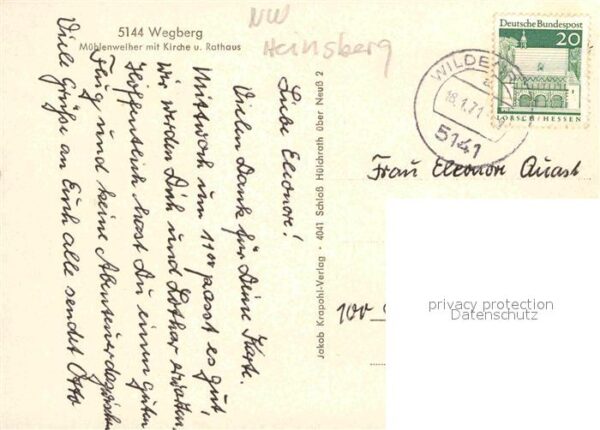 5144 Wegberg
Mühlenweiher mit Kirche u. Rathaus
NW
Heinsberg
Liebe Eleonore!
Vielen Dank für Deine Karte.
Mittwoch um 11⁰⁰ passt es gut,
wir werden Dich und Lothar erwarten.
Hoffentlich hast Du einen guten
Flug und keine Abenteuer dazwischen
Viele Grüße an Euch alle sendet Otto
Jakob Krapohl-Verlag · 4041 Schloß Hülchrath über Neuß 2
Deutsche Bundespost
20
LORSCH/HESSEN
18.1.71
5141
Frau Eleonore Quast
100
privacy protection
Datenschutz